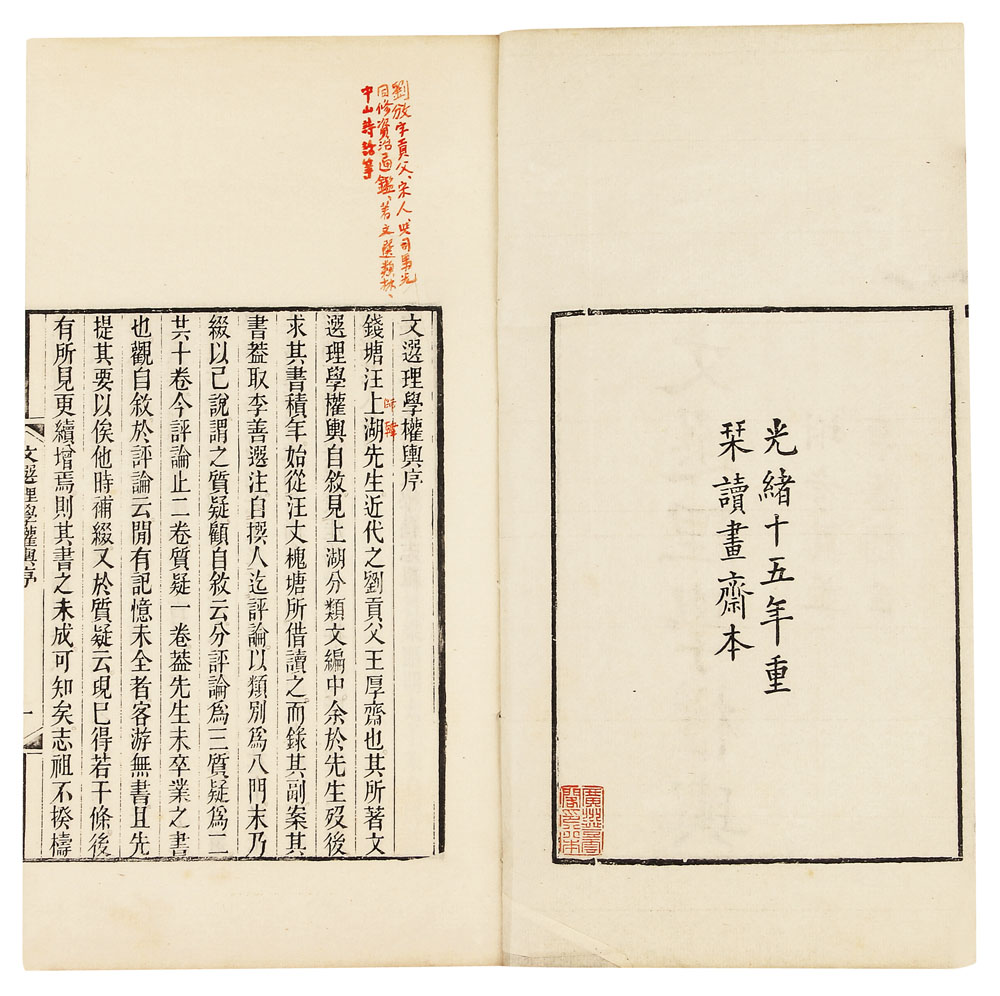 光緒十五年重
栞讀畫齋本
劉攽字貢父、宋人、與司馬光
同修資治通鑑、著文選類林、
中山詩話等
文選理學權輿序
師韓
錢塘汪上湖先生近代之劉貢父王厚齋也其所著文
選理學權輿自敘見上湖分類文編中余於先生歿後
求其書積年始從汪丈槐塘所借讀之而錄其副案其
書葢取李善選注自撰人迄評論以類別爲八門末乃
綴以己說謂之質疑顧自敘云分評論爲三質疑爲二
共十卷今評論止二卷質疑一卷葢先生未卒業之書
也觀自敘於評論云閒有記憶未全者客游無書且先
提其要以俟他時補綴又於質疑云現巳得若干條後
有所見更續增焉則其書之未成可知矣志祖不揆檮
文選理學權輿序
一